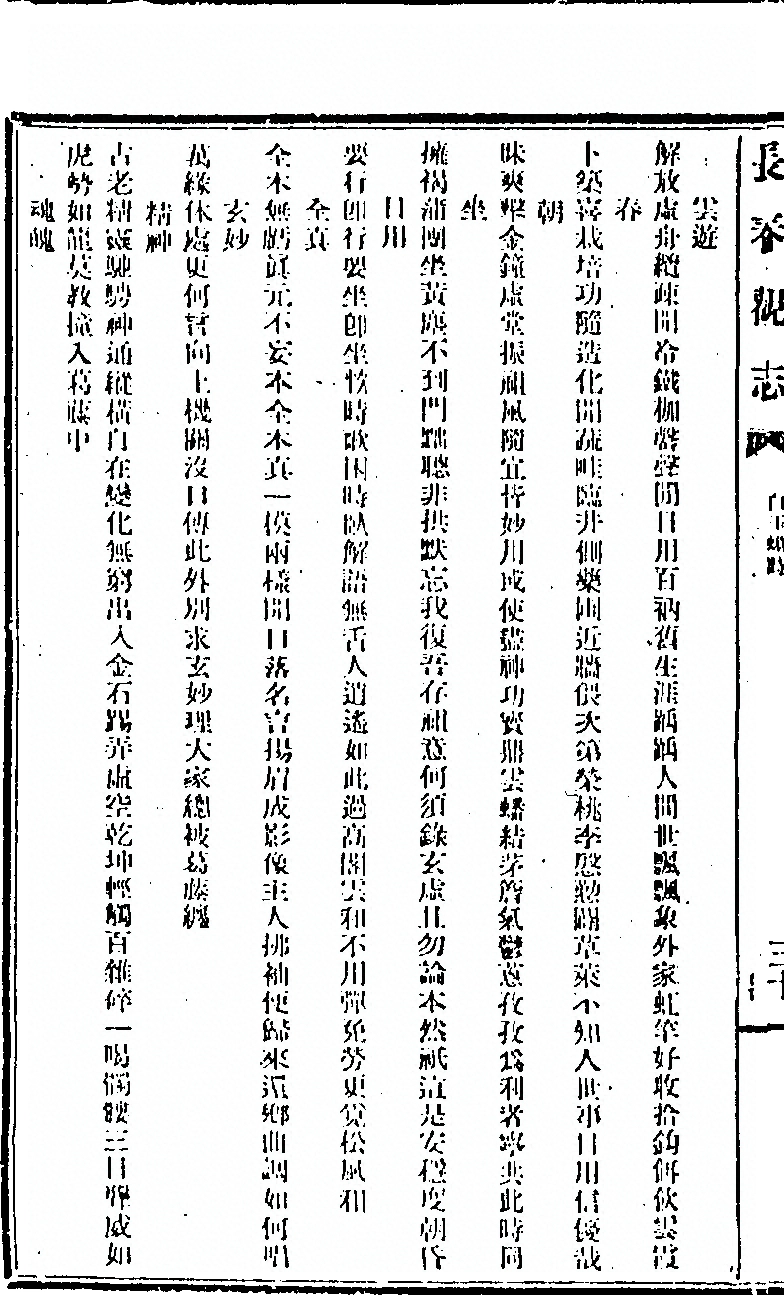 長春觀志
雲遊
解放虛舟纜疎開冷鐵枷聲聲閒日用百衲舊生涯踽踽人間世飄飄象外家虹竿好收拾鈎餌伙雲霞
春
卜築喜栽培功隨造化開蔬畦臨井側藥圃近牆偎次第榮桃李慇懃闢草萊不知人世事日用信優哉
朝
昧爽擊金鐘虛堂振祖風隨宜皆妙用咸使盡神功寶鼎雲蟠結茅齋氣鬱蔥孜孜為利者寧共此時同
坐
擁褐蒲團坐黃塵不到門黜聰非拱默忘我復吾存祖意何須錄玄虛且勿論本然祇這是安穩度朝昏
日用
要行即行要坐即坐快時歌困時臥解語無舌人逍遙如此過高閣雲和不用彈免勞更覓松風和
全真
全本無虧真元不妄本全本真一模兩樣開口落名言揚眉成影像主人拂袖便歸來還鄉曲調如何唱
玄妙
萬緣休處更何言向上機關沒口傳此外別求玄妙理大家總被葛藤纏
精神
古老精靈馳騁神通縱橫自在變化無窮出入金石踢弄虛空乾坤輕觸百雜碎一喝髑髏三日聾威如
虎勢如龍莫教撞入葛藤中
魂魄